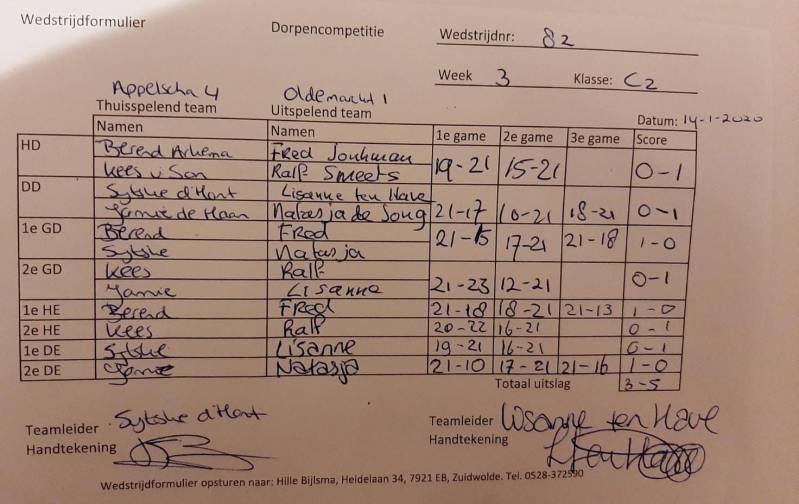 Wedstrijdformulier Dorpencompetitie Wedstrijdnr: 82
Week 3 Klasse: C2
Appelscha 4 Oldemarkt 1
Thuisspelend team Uitspelend team Datum: 14-1-2020
Namen Namen 1e game 2e game 3e game Score
HD Berend Arkema Fred Jonkman 19-21 15-21 0-1
Kees v Son Ralf Smeets
DD Sytske d'Hont Lisanne ten Have
Jamie de Haan Natasja de Jong 21-17 10-21 18-21 0-1
1e GD Berend Fred 21-15 17-21 21-18 1-0
Sytske Natasja
2e GD Kees Ralf
Jamie Lisanne 21-23 12-21 0-1
1e HE Berend Fred 21-18 18-21 21-13 1-0
2e HE Kees Ralf 20-22 16-21 0-1
1e DE Sytske Lisanne 19-21 16-21 0-1
2e DE Jamie Natasja 21-10 17-21 21-16 1-0
Totaal uitslag 3-5
Teamleider Sytske d'Hont Teamleider Lisanne ten Have
Handtekening Handtekening
Wedstrijdformulier opsturen naar: Hille Bijlsma, Heidelaan 34, 7921 EB, Zuidwolde. Tel. 0528-372590